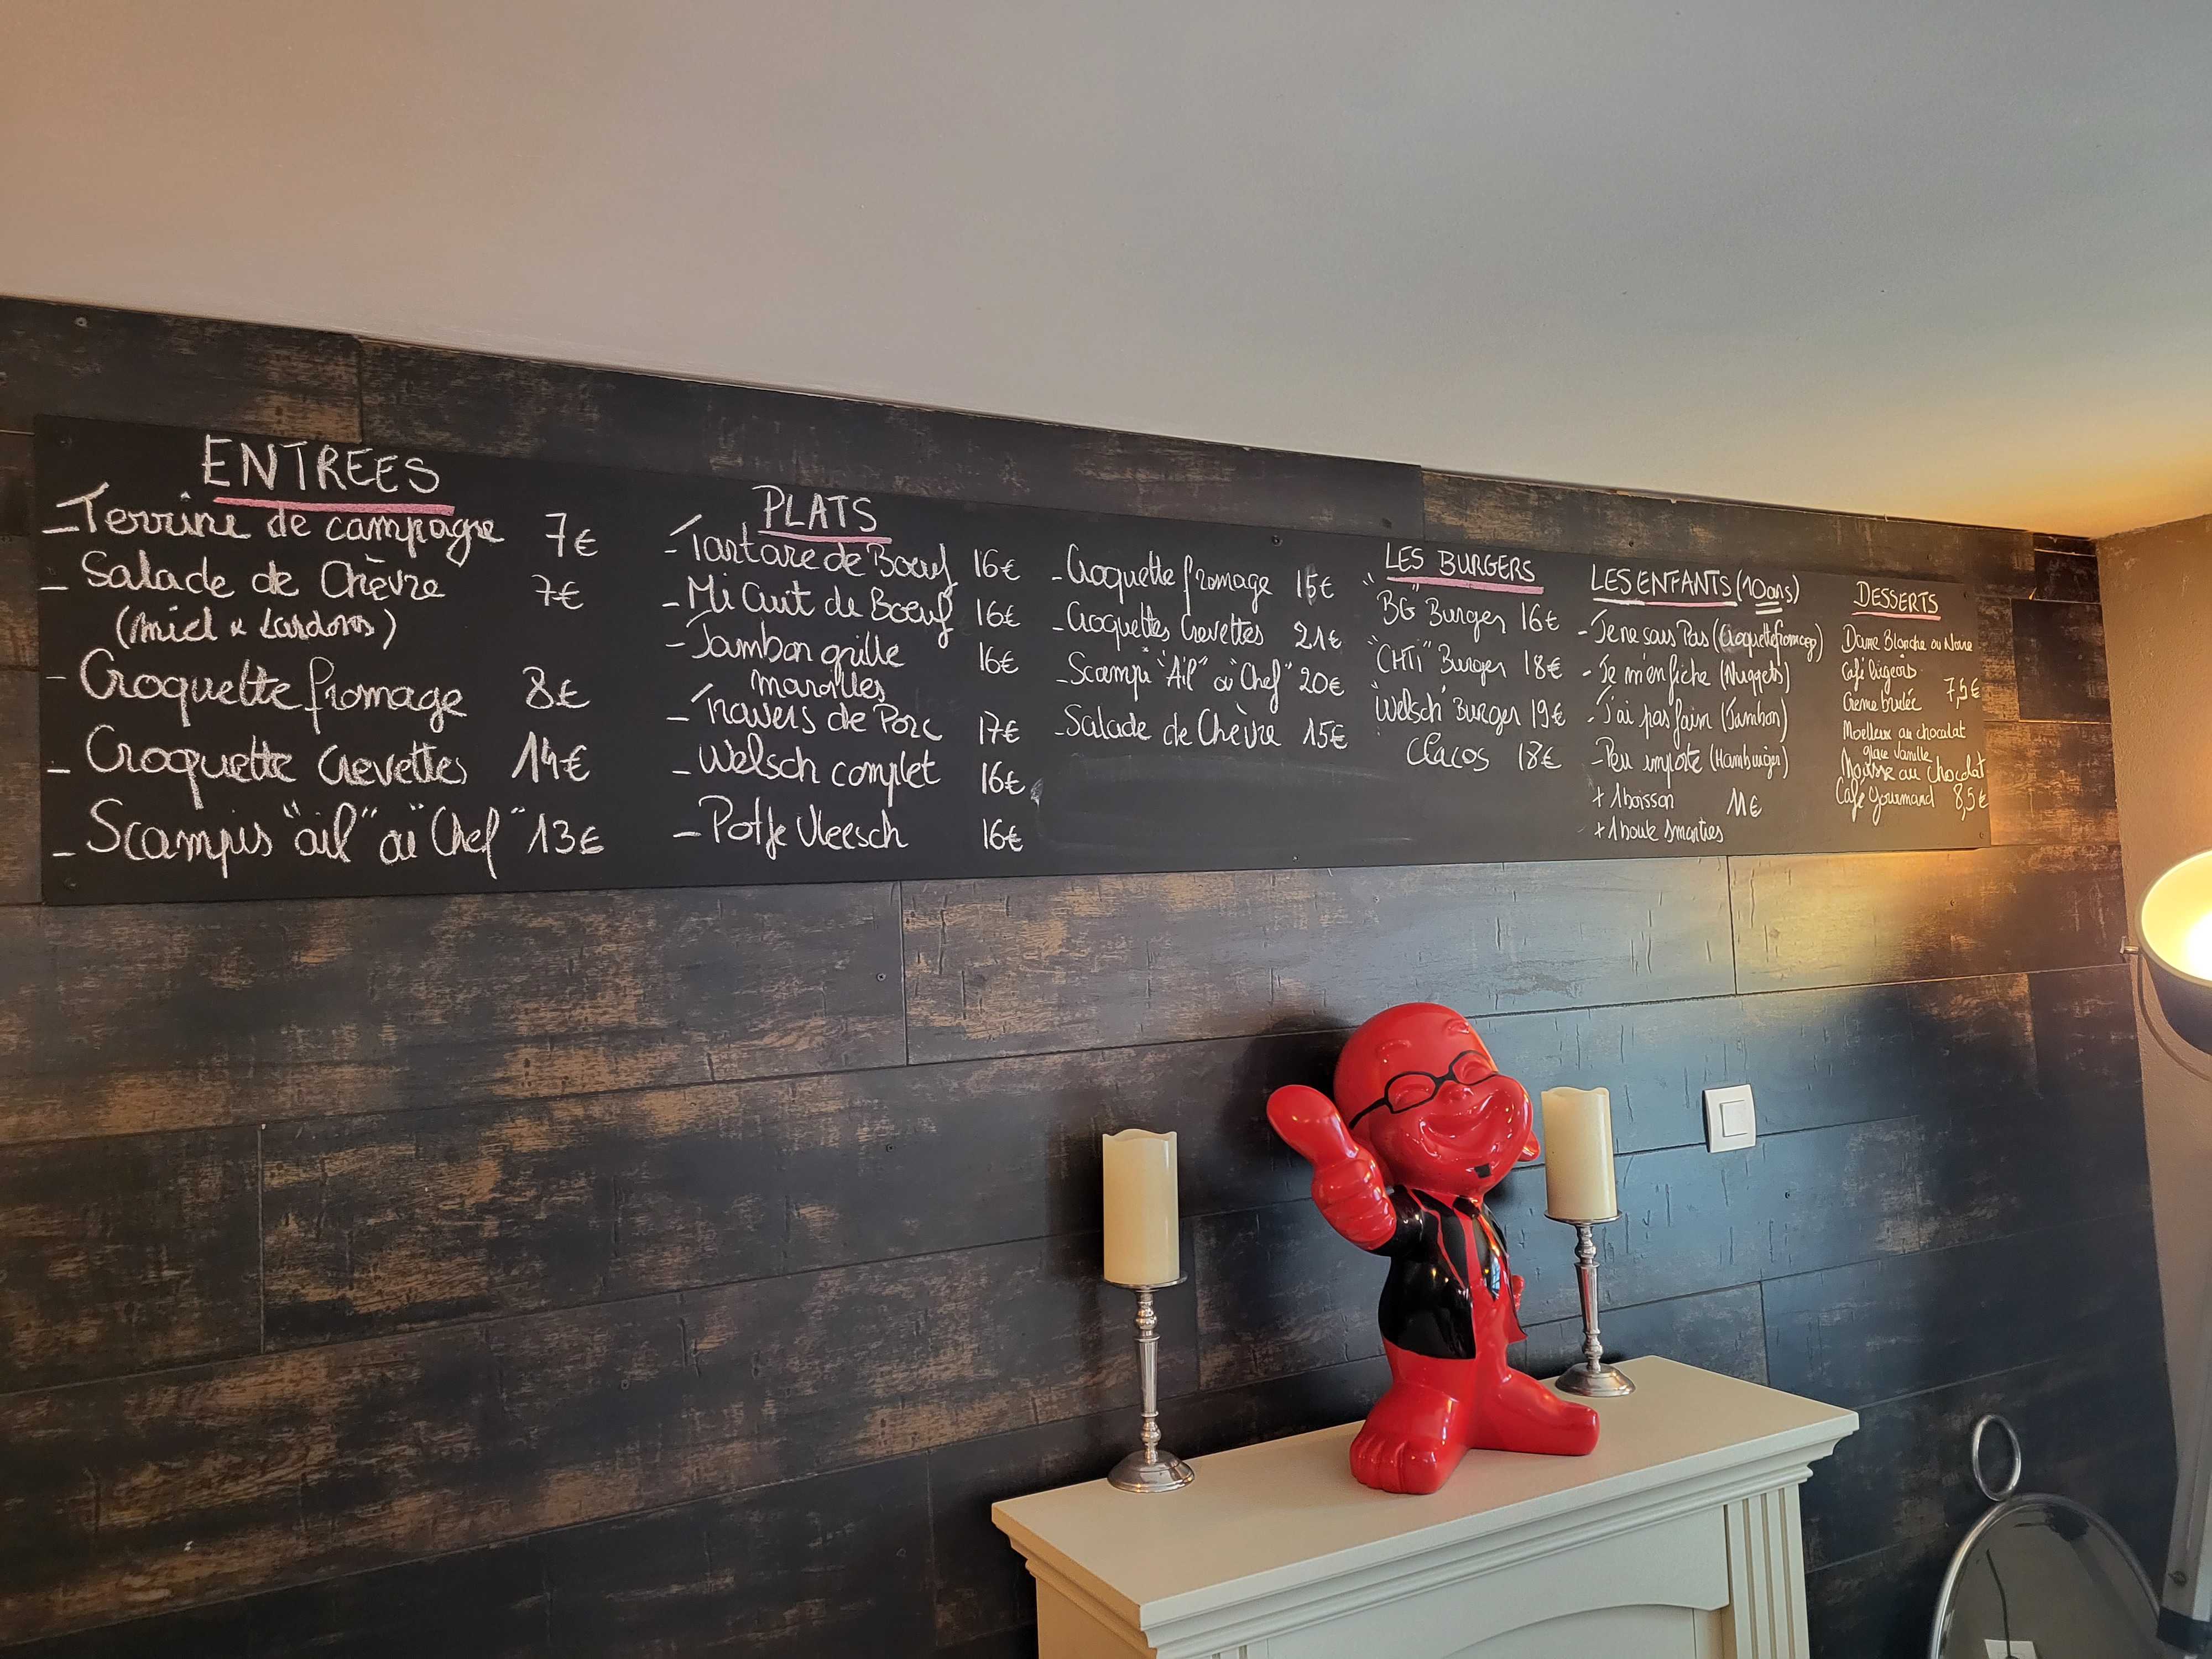 ENTREES
- Terrine de campagne 7€
- Salade de Chèvre 7€
(miel & Lardons)
- Croquette fromage 8€
- Croquette Crevettes 14€
- Scampis "ail" ou "Chef" 13€
PLATS
- Tartare de Boeuf 16€
- Mi Cuit de Boeuf 16€
- Jambon grille 16€
maroilles
- Travers de Porc 17€
- Welsch complet 16€
- Potje Vleesch 16€
- Croquette fromage 15€
- Croquettes Crevettes 21€
- Scampi "Ail" ou "Chef" 20€
- Salade de Chèvre 15€
LES BURGERS
"BG" Burger 16€
"CHTi" Burger 18€
"Welsch" Burger 19€
Clacos 18€
LES ENFANTS (10ans)
- Je ne sais Pas (Croquette fromage)
- Je m'en fiche (Nuggets)
- J'ai pas faim (Jambon)
- Peu importe (Hamburger)
+ 1 boisson 11€
+ 1 boule smarties
DESSERTS
Dame Blanche ou Noire
Café liégeois
Crème brulée 7,5€
Moelleux au chocolat
glace vanille
Mousse au chocolat
Café Gourmand 8,5€